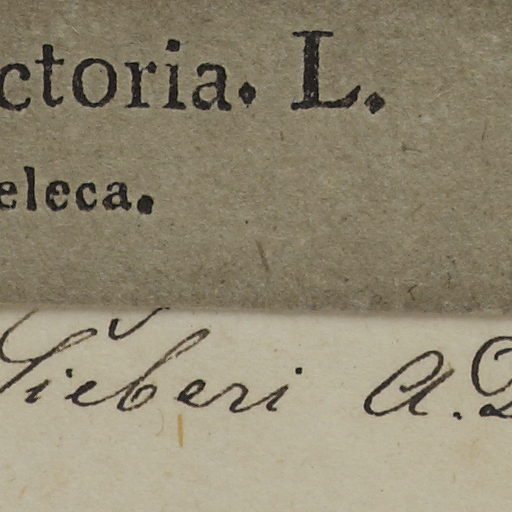 ctoria. L.
eleca.
Sieberi A.D